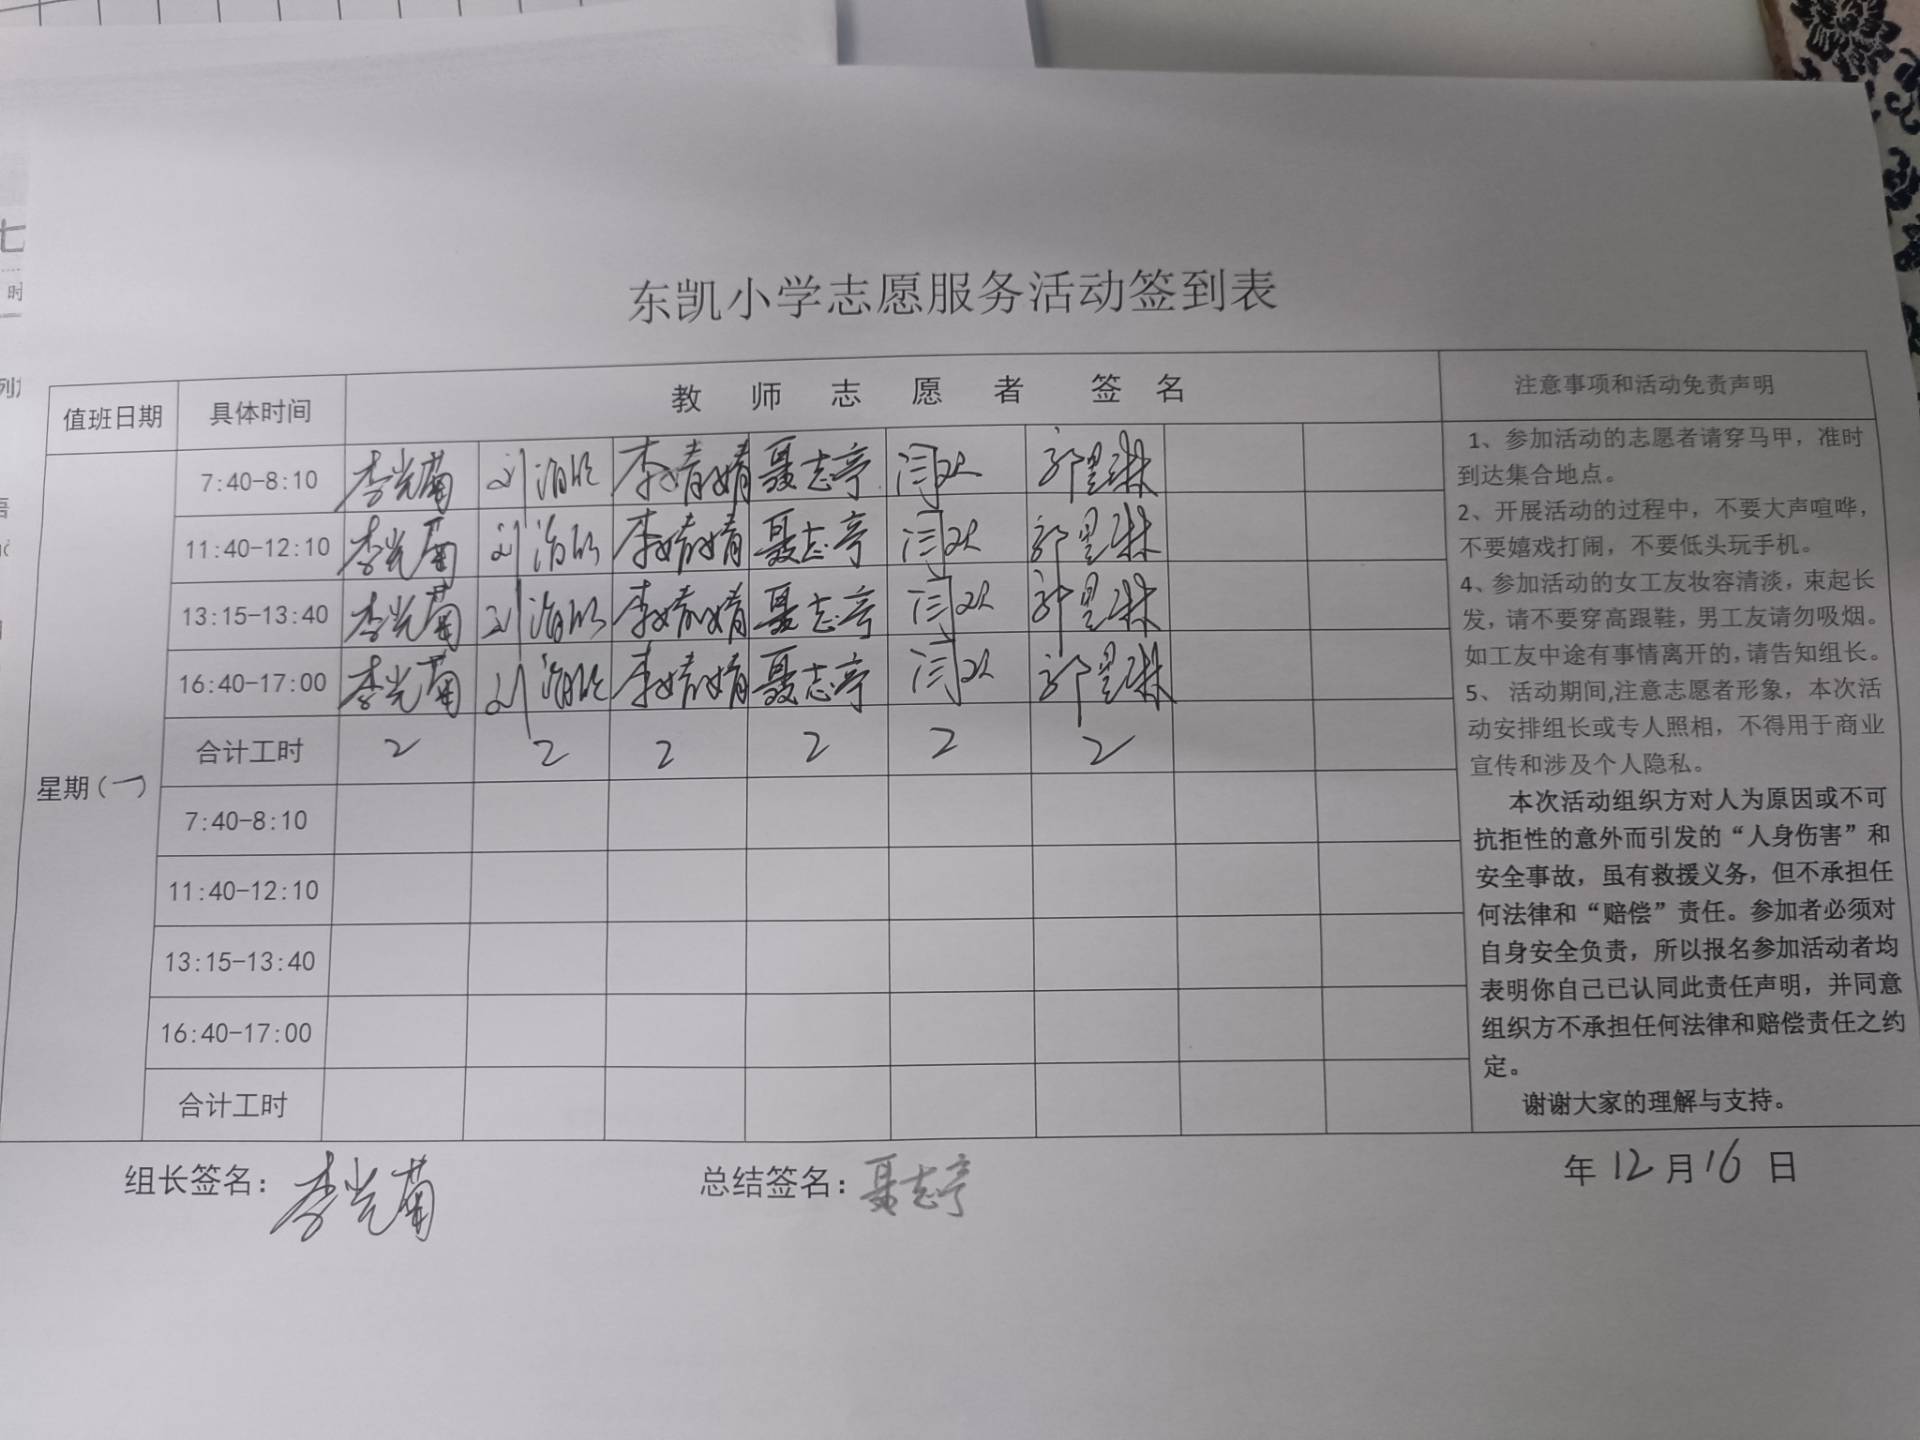 东凯小学志愿服务活动签到表
值班日期 具体时间 教师志愿者签名 注意事项和活动免责声明
星期(一)
7:40-8:10 李光菊 李婧婧 聂志亭
11:40-12:10 李光菊 李婧婧 聂志亭
13:15-13:40 李光菊 李婧婧 聂志亭
16:40-17:00 李光菊 李婧婧 聂志亭
合计工时 2 2 2 2 2 2
7:40-8:10
11:40-12:10
13:15-13:40
16:40-17:00
合计工时
1、参加活动的志愿者请穿马甲，准时
到达集合地点。
2、开展活动的过程中，不要大声喧哗，
不要嬉戏打闹，不要低头玩手机。
4、参加活动的女工友妆容清淡，束起长
发，请不要穿高跟鞋，男工友请勿吸烟。
如工友中途有事情离开的，请告知组长。
5、 活动期间,注意志愿者形象，本次活
动安排组长或专人照相，不得用于商业
宣传和涉及个人隐私。
本次活动组织方对人为原因或不可
抗拒性的意外而引发的“人身伤害”和
安全事故，虽有救援义务，但不承担任
何法律和“赔偿”责任。参加者必须对
自身安全负责，所以报名参加活动者均
表明你自己已认同此责任声明，并同意
组织方不承担任何法律和赔偿责任之约
定。
谢谢大家的理解与支持。
组长签名：李光菊 总结签名：聂志亭 年12月16日